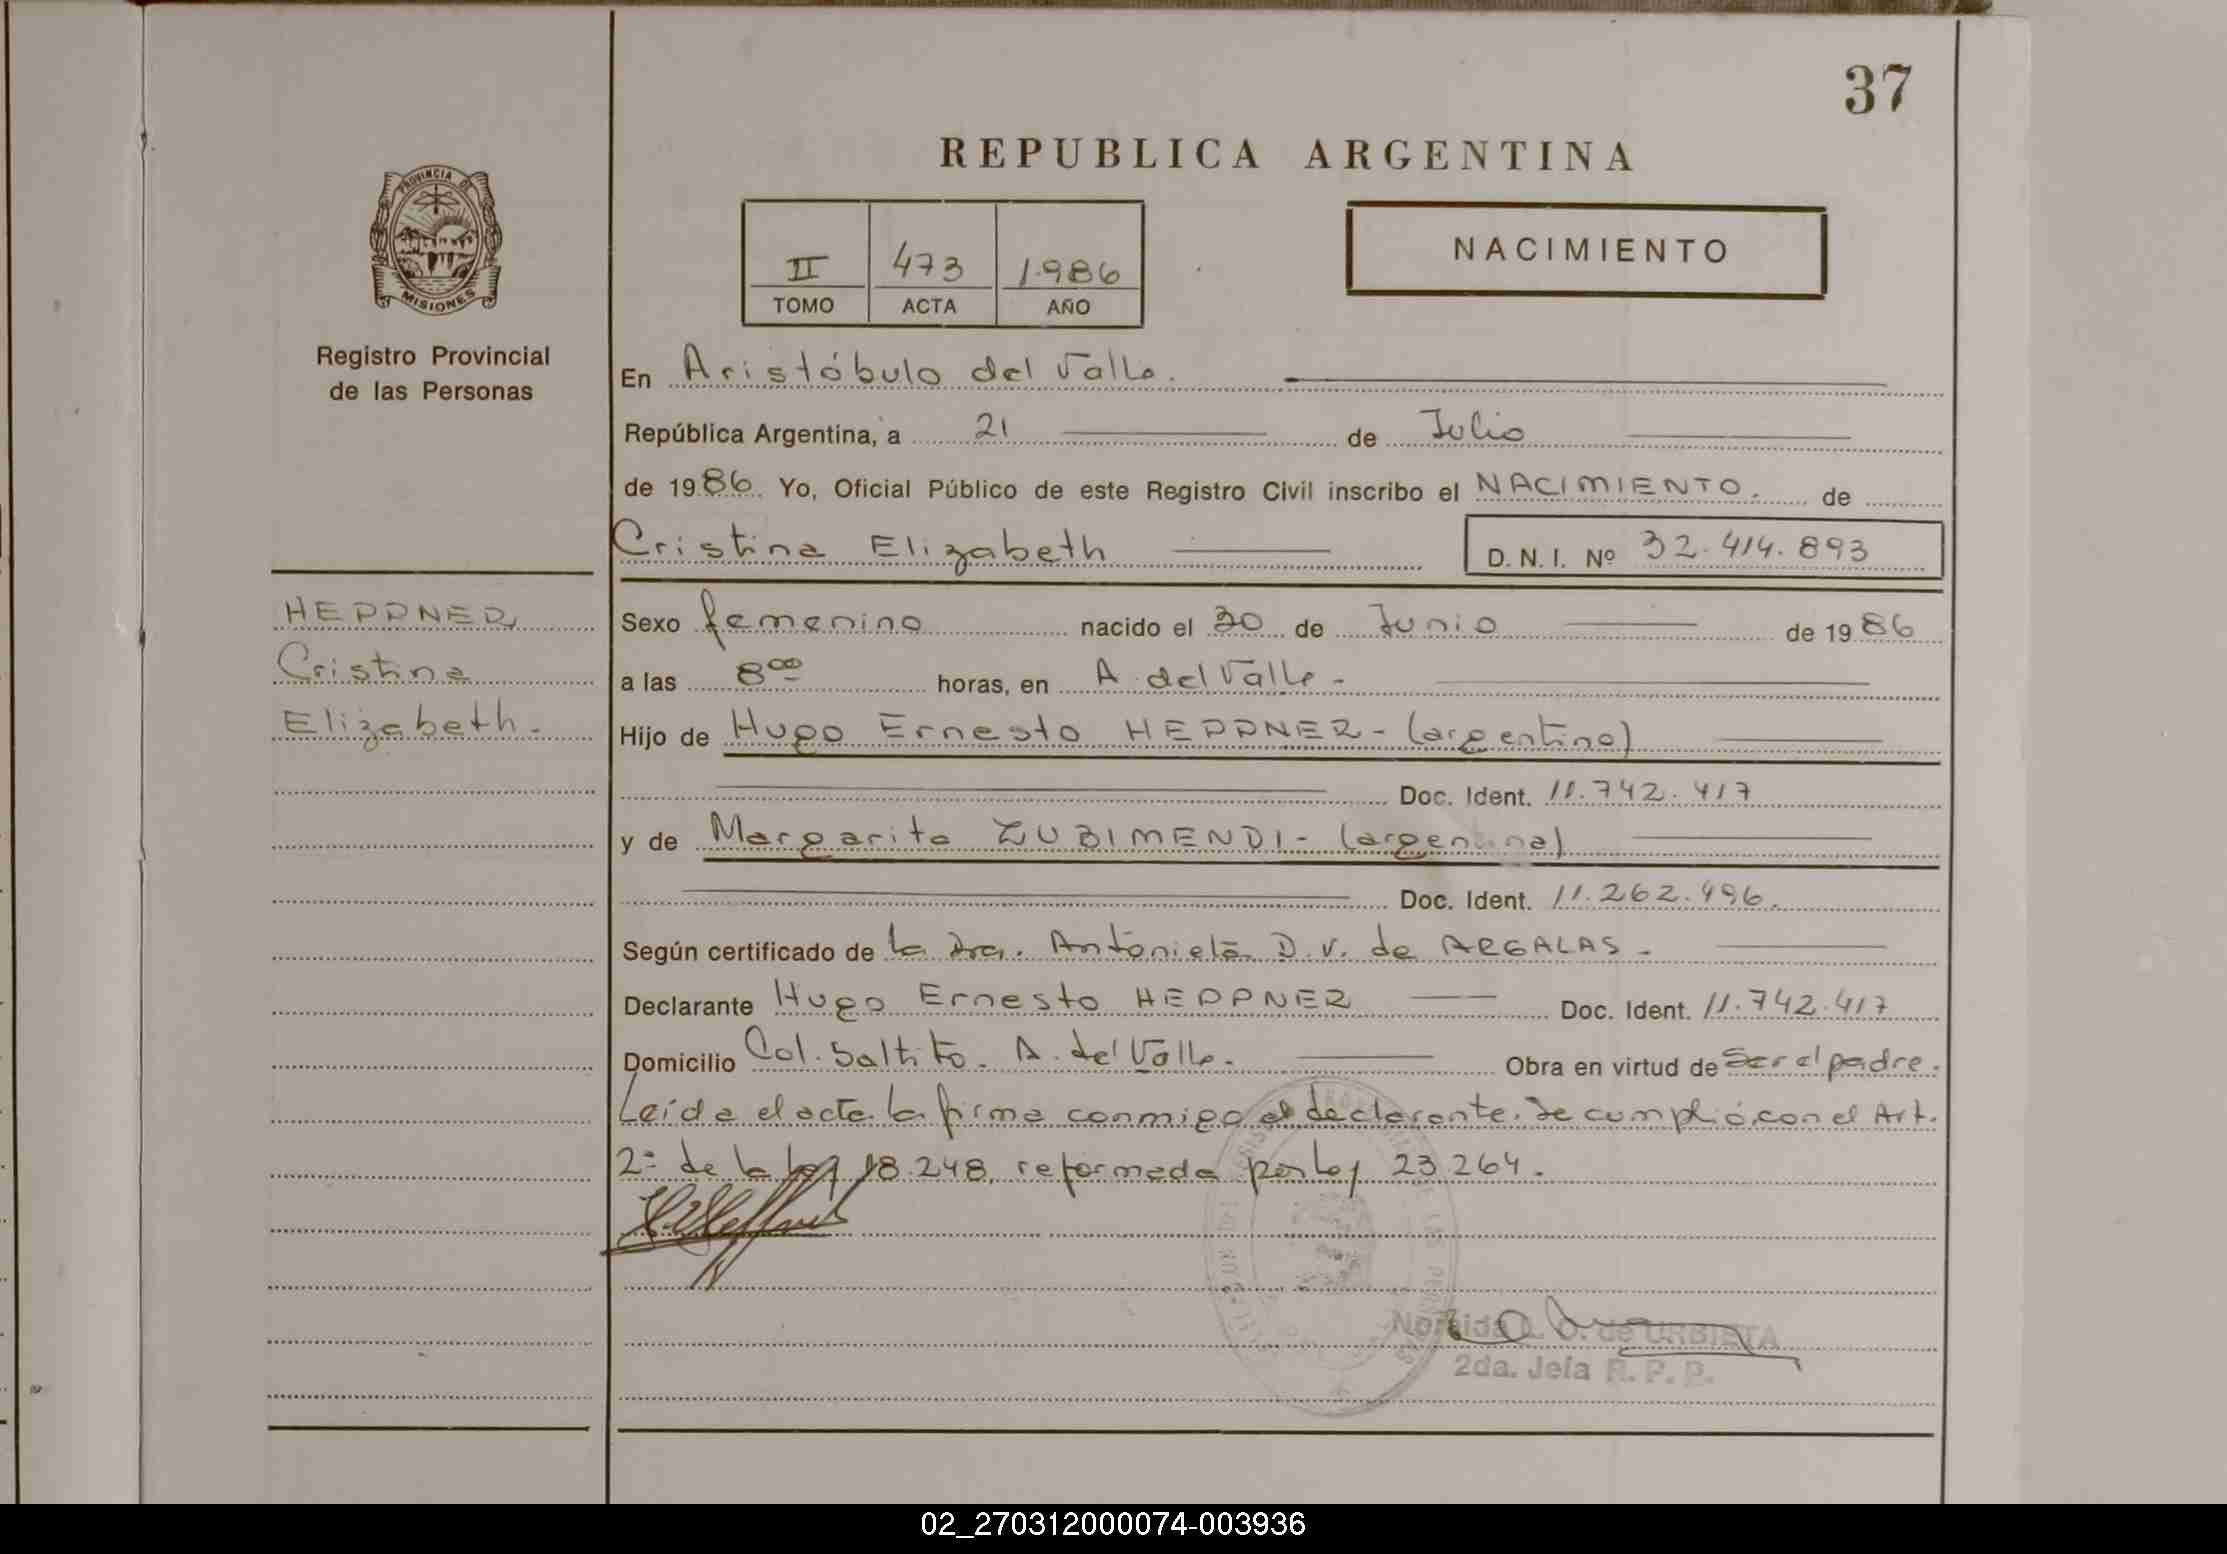 37
REPUBLICA ARGENTINA
PROVINCIA DE
MISIONES
Registro Provincial
de las Personas
II 473 1.986
TOMO ACTA AÑO
NACIMIENTO
En Aristóbulo del Valle.
República Argentina, a 21 de Julio
de 1986. Yo, Oficial Público de este Registro Civil inscribo el NACIMIENTO. de
Cristina Elizabeth D. N. I. Nº 32.414.893
HEPPNER
Cristina
Elizabeth.-
Sexo femenino nacido el 30 de Junio de 1986
a las 8⁰⁰ horas, en A. del Valle-
Hijo de Hugo Ernesto HEPPNER- (argentino)
Doc. Ident. 11.742.417
y de Margarita ZUBIMENDI- (argentina)
Doc. Ident. 11.262.496.
Según certificado de la Dra. Antonieta D.V. de ARGALAS-
Declarante Hugo Ernesto HEPPNER Doc. Ident. 11.742.417
Domicilio Col. Saltito. A. del Valle. Obra en virtud de Ser el padre.
Leída el acta la firma conmigo el declarante. Se cumplió con el Art.
2º de la ley 18.248, reformada por ley 23264.
L. O. de URBIETA
2da. Jefa R. P. P.
02_270312000074-003936